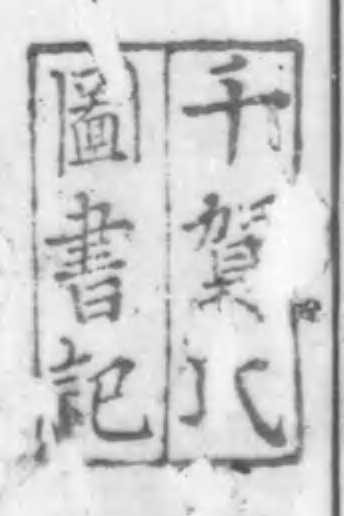 千賀氏
圖書記